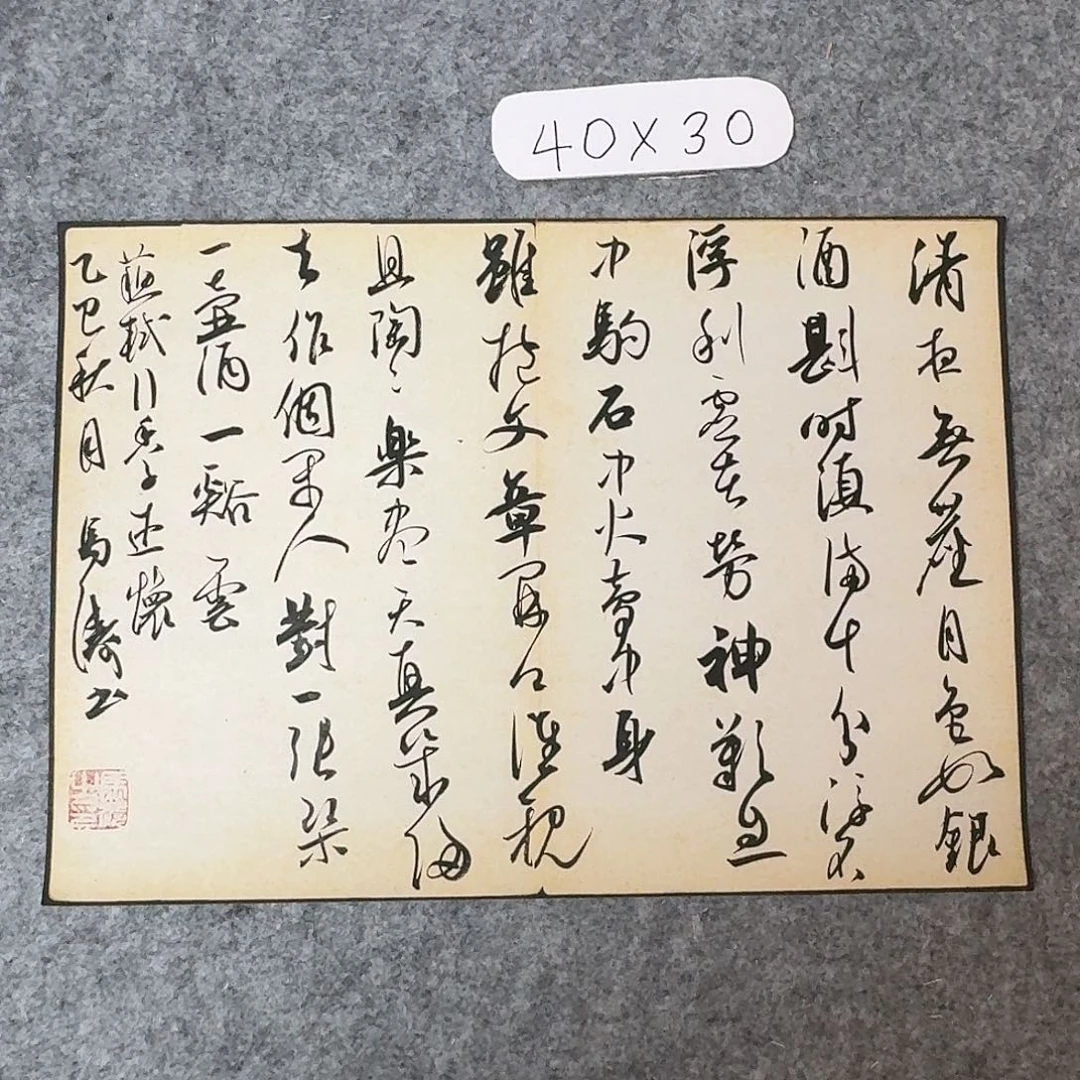 40X30
清夜無塵月色如銀
酒斟時須滿十分浮名
浮利虛苦勞神歎隙
中駒石中火夢中身
雖抱文章開口誰親
且陶〻樂盡天真幾時歸
去作個閒人對一張琴
一壺酒一谿雲
蘇軾行香子述懷
乙巳秋月 馬濤書